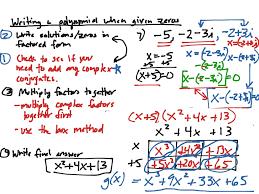 Writing a polynomial when given zeros
② Write solutions/zeros in factored form
① Check to see if you need to add any complex conjugates.
③ Multiply factors together
-multiply complex factors together first
- use the box method
④ Write final answer
x²+4x+13
7) -5, -2-3i, -2+3i
x=-5
+5 +5
(x+5)=0
x=(-2-3i)
-(-2-3i)
x-(-2-3i)=0
x=(-2+3i)
x-(-2+3i)=0
(x+5)(x²+4x+13)
x²+4x+13
x x³ +4x² +13x
+5 +5x² +20x +65
g(x)= x³+9x²+33x+65